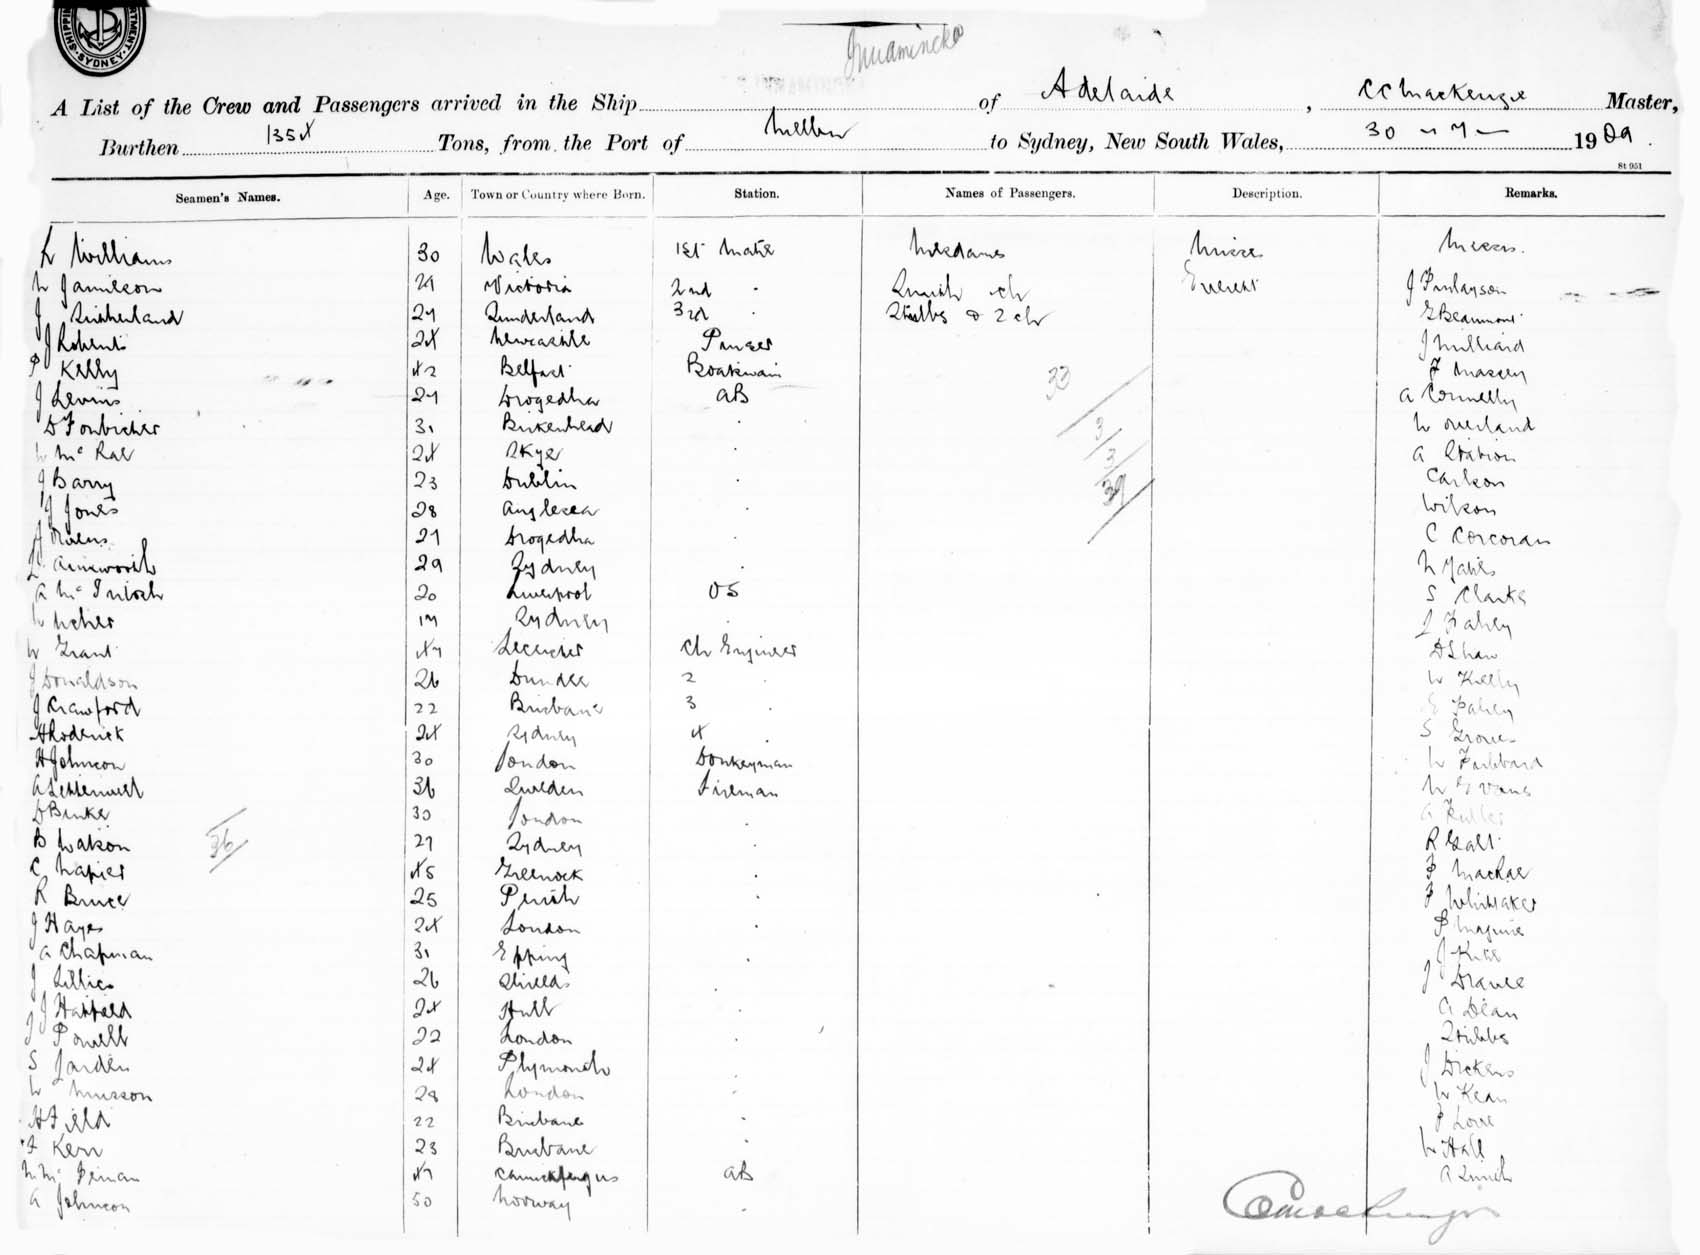 SHIPPING DEPARTMENT SYDNEY
Innamincka
A List of the Crew and Passengers arrived in the Ship of Adelaide, CC Mackenzie Master,
Burthen 1354 Tons, from the Port of Melbn to Sydney, New South Wales, 30 - 7 - 1909.
St 951
Seamen's Names. Age. Town or Country where Born. Station. Names of Passengers. Description. Remarks.
Williams 30 Wales 1st Mate Mesdames Misses Messrs.
W Jamieson 29 Victoria 2nd . Smith ch Everett J Finlayson
J Sutherland 27 Sunderland 3rd . Stubbs & 2 chr G Beaumont
J Roberts 24 Newcastle J Milliard
P Kelly 42 Belfast Boatswain F Massey
J Levins 27 Drogedha AB 33 A Connelly
D 31 Birkenhead . W Overland
W McRae 24 Skye . 3 A Station
J Barry 23 Dublin . 3 Carlson
J Jones 28 Anglesea . 39 Wilson
J Owens 27 Drogedha . C Corcoran
L Ainsworth 29 Sydney . W Yates
A McIntosh 20 Liverpool OS S Clarke
W Usher 17 Sydney . J Fahey
W Grant 47 Leicester Ch Engineer D Shaw
J Donaldson 26 Dundee 2 . W Kelly
J Crawford 22 Brisbane 3 . Fahey
H Roderick 24 Sydney 4 . S Groves
H Johnson 30 London Donkeyman W
A 36 Sweden Fireman W Evans
D 30 London . A Fuller
B Watson 27 Sydney . R Galt
36
C Napier 45 Greenock . F MacRae
R Bruce 25 Perith . F Whittaker
J Hayes 24 London . P Maguire
A Chapman 31 Epping . J
J Lillies 26 Shields . J
J Hatfield 24 Hull . A Dean
J Powell 22 London . Stubbs
S Jarden 24 Plymouth . J Dickens
W Musson 29 London . W Kean
H Field 22 Brisbane . P Love
F Kerr 23 Brisbane . W Hall
47 Carrickfergus AB A Smith
A Johnson 50 Norway .
CC Mackenzie